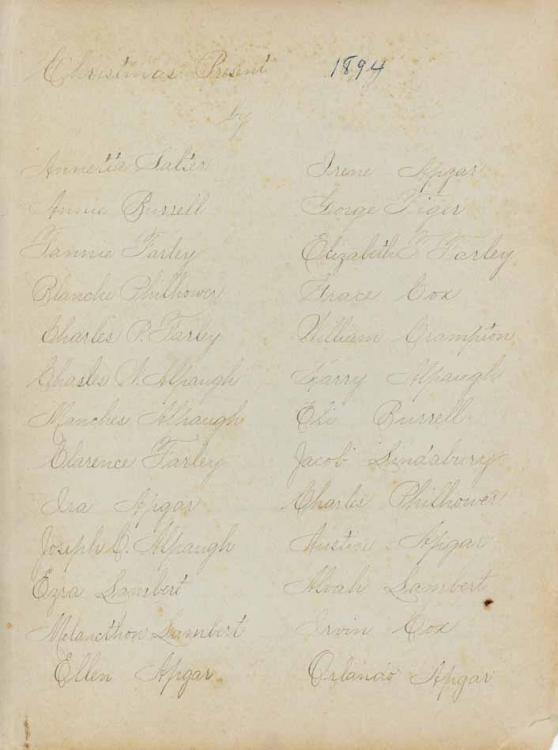 Christmas Present 1894
by
Annetta Salter
Annie Burrell
Fannie Farley
Blanche Philhower
Charles P. Farley
Charles N. Alpaugh
Manches Alpaugh
Clarence Farley
Ira Apgar
Joseph C. Alpaugh
Ezra Lambert
Melancthon Lambert
Ellen Apgar
Irene Apgar
George Tiger
Elizabeth E. Farley
Grace Cox
William Crampton
Harry Alpaugh
Eli Burrell
Jacob Lindabury
Charles Philhower
Austin Apgar
Alvah Lambert
Irvin Cox
Orlando Apgar